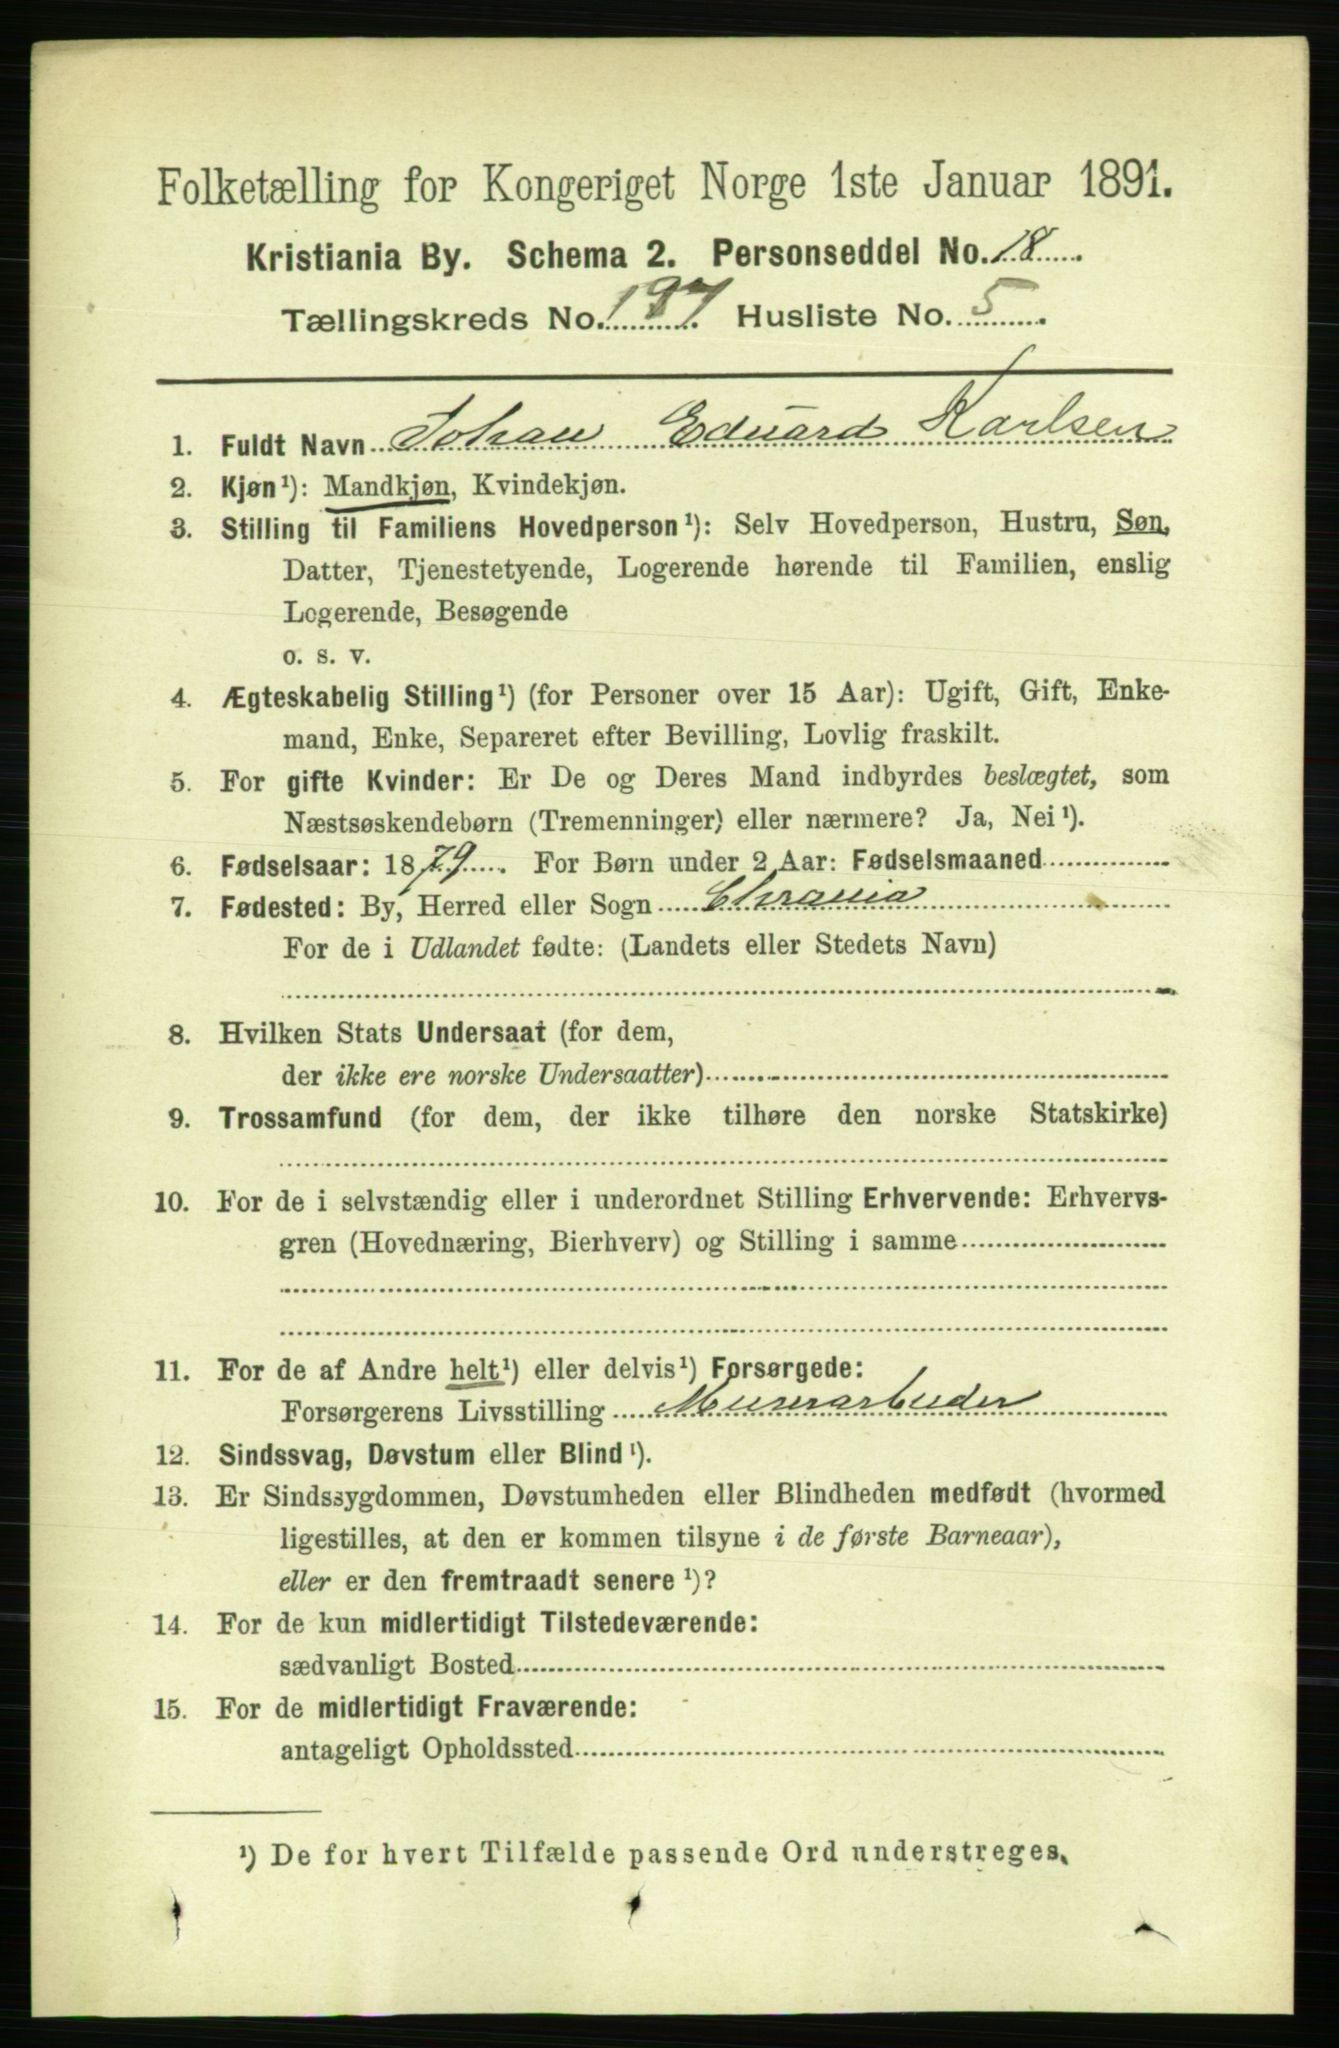 Folketælling for Kongeriget Norge 1ste Januar 1891.
Kristiania By. Schema 2. Personseddel No. 18
Tællingskreds No. 197. Husliste No. 5
1. Fuldt Navn Johan Eduard Karlsen
2. Kjøn¹): Mandkjøn, Kvindekjøn.
3. Stilling til Familiens Hovedperson¹): Selv Hovedperson, Hustru, Søn,
Datter, Tjenestetyende, Logerende hørende til Familien, enslig
Logerende, Besøgende
o. s. v.
4. Ægteskabelig Stilling¹) (for Personer over 15 Aar): Ugift, Gift, Enke-
mand, Enke, Separeret efter Bevilling, Lovlig fraskilt.
5. For gifte Kvinder: Er De og Deres Mand indbyrdes beslægtet, som
Næstsøskendebørn (Tremenninger) eller nærmere? Ja, Nei¹).
6. Fødselsaar: 1879. For Børn under 2 Aar: Fødselsmaaned
7. Fødested: By, Herred eller Sogn Chrania
For de i Udlandet fødte: (Landets eller Stedets Navn)
8. Hvilken Stats Undersaat (for dem,
der ikke ere norske Undersaatter)
9. Trossamfund (for dem, der ikke tilhøre den norske Statskirke)
10. For de i selvstændig eller i underordnet Stilling Erhvervende: Erhvervs-
gren (Hovednæring, Bierhverv) og Stilling i samme
11. For de af Andre helt¹) eller delvis¹) Forsørgede:
Forsørgerens Livsstilling Murerarbeider
12. Sindssvag, Døvstum eller Blind¹).
13. Er Sindssygdommen, Døvstumheden eller Blindheden medfødt (hvormed
ligestilles, at den er kommen tilsyne i de første Barneaar),
eller er den fremtraadt senere¹)?
14. For de kun midlertidigt Tilstedeværende:
sædvanligt Bosted
15. For de midlertidigt Fraværende:
antageligt Opholdssted
¹) De for hvert Tilfælde passende Ord understreges.